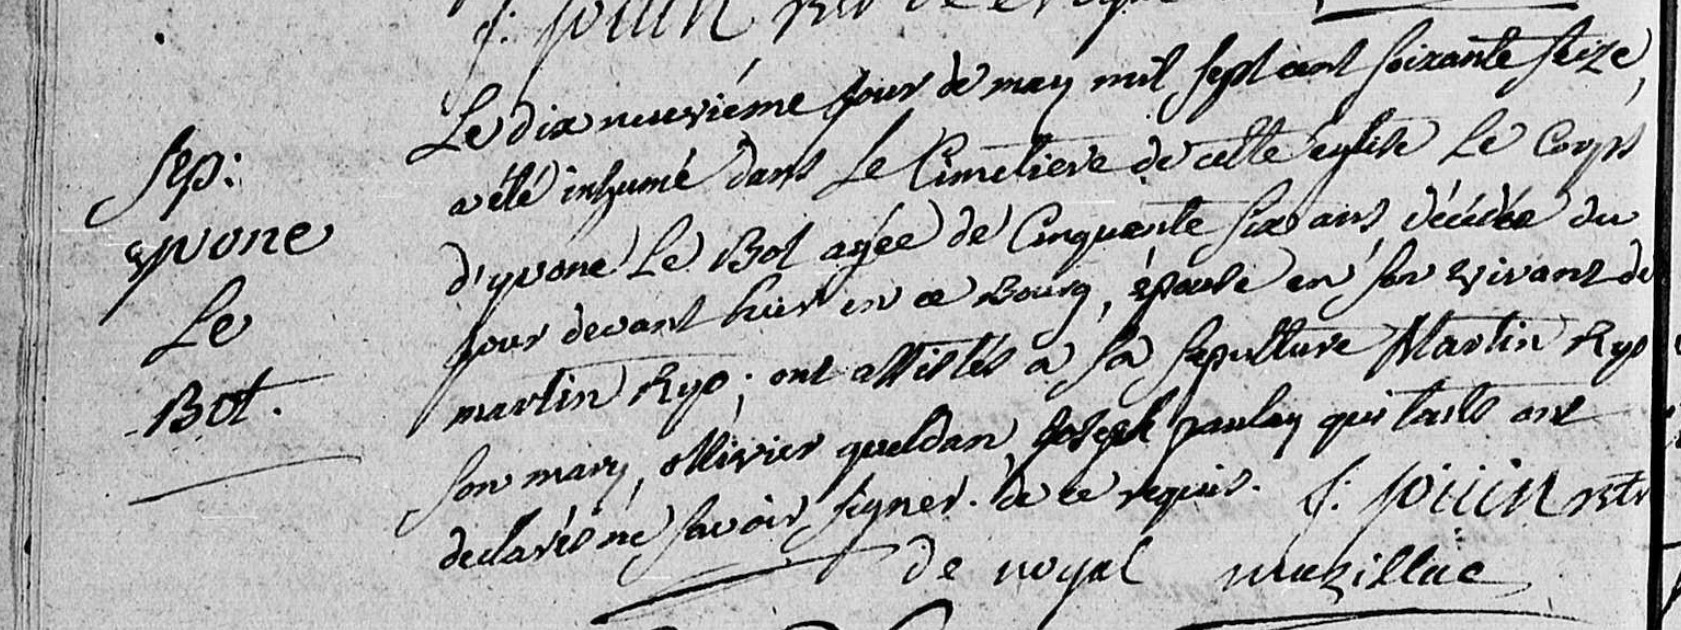 f: jouin rtr de
Le dix neuviéme jour de may mil sept cent soixante seize,
a été inhumé dans Le Cimetiere de cette eglise Le Corps
d'yvone Le Bot agée de Cinquante six ans, décédée du
jour devant hier en ce Bourg, épouse en son vivant de
martin Ryo; ont assistés a sa sepulture Martin Ryo
son mary, ollivier queldan, Joseph paulay qui touts ont
declarés ne savoir signer. de ce requis. f: jouin rtr
de noyal muzillac
sep:
yvone
Le
Bot.